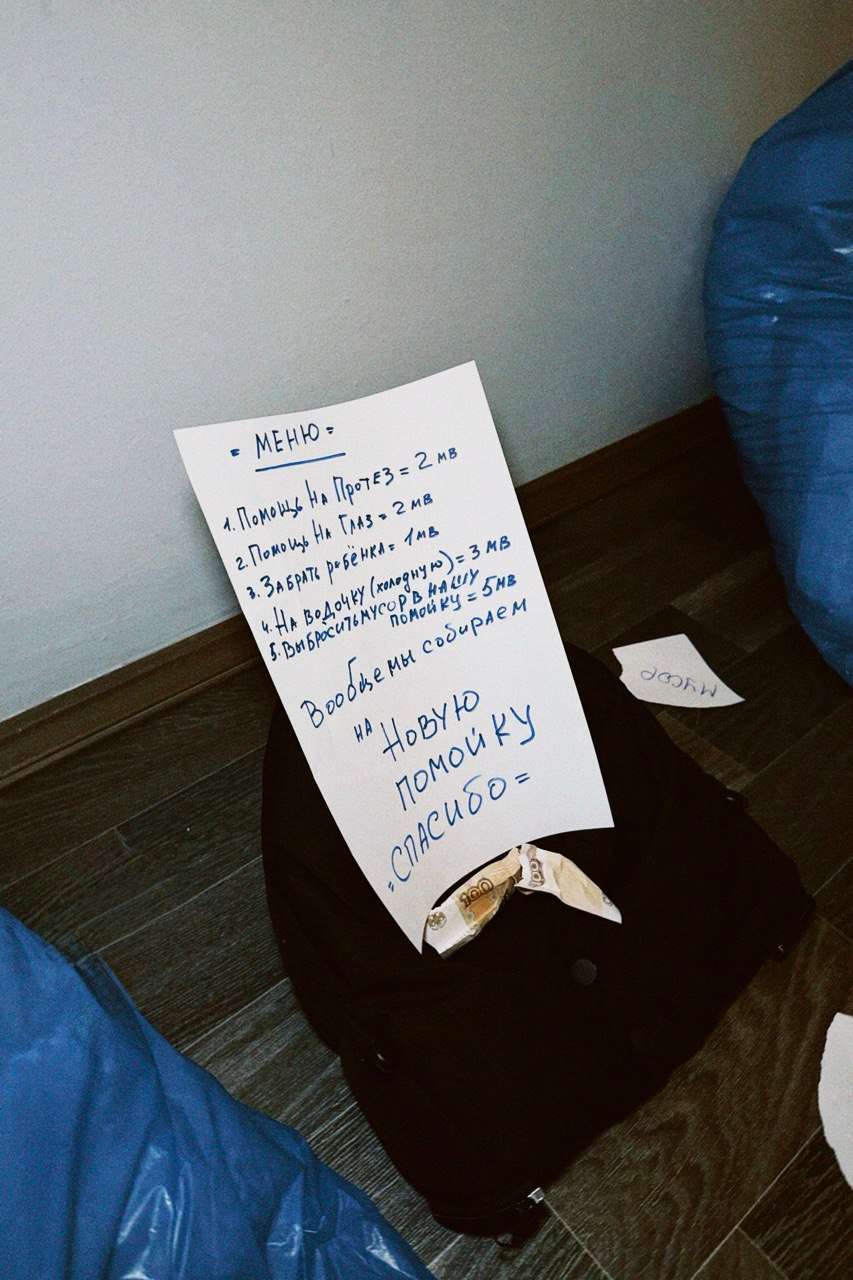 = МЕНЮ =
1. Помощь На Протез = 2 мв
2. Помощь На Глаз = 2 мв
3. Забрать ребёнка = 1 мв
4. На водочку (холодную) = 3 мв
5. Выбросить мусор в нашу
помойку = 5 мв
Вообще мы собираем
на Новую
помойку
=СПАСИБО=
мусор
100
100